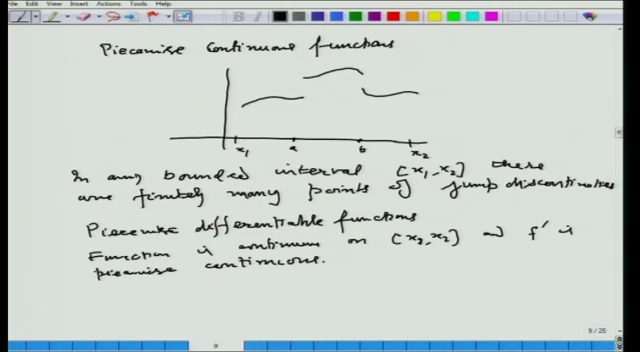 Edit View Insert Actions Tools Help
B I
Piecewise Continuous functions
x1 a b x2
In any bounded interval [x1, x2] there
are finitely many points of jump discontinuities
Piecewise differentiable functions
Function is continuous on [x1, x2] and f' is
piecewise continuous.
9 / 25
9